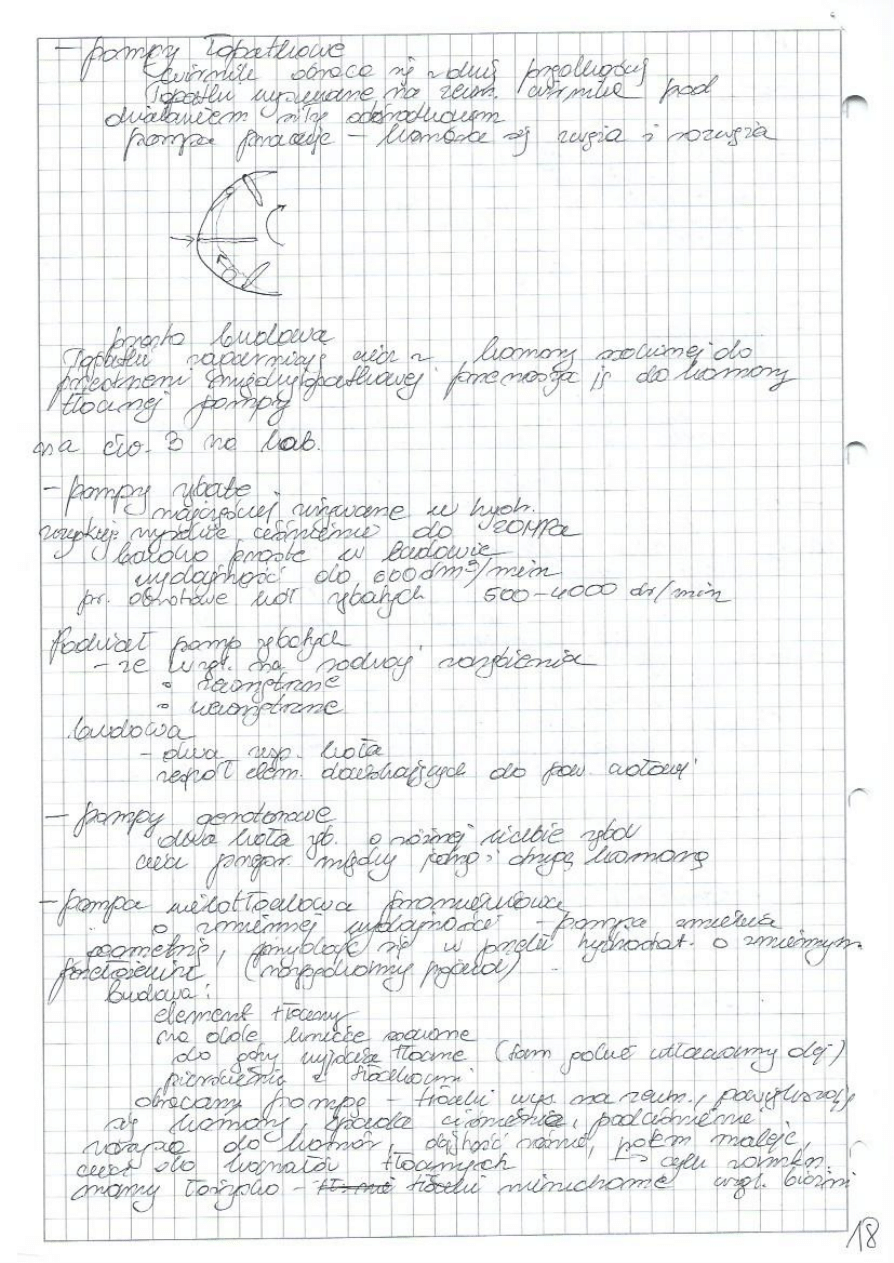 - pompy łopatkowe
wirnik obraca się z dużą prędkością
łopatki wysuwane na zewn. wirnika pod
działaniem siły odśrodkowej
pompa pracuje - komora się zwęża i rozwęża
prosta budowa
łopatki zagarniają ciecz z komory ssawnej do
przestrzeni międzyłopatkowej przenosząc ją do komory
tłocznej pompy
na ćw. 3 na lab.
- pompy zębate
najczęściej używane w hydr.
wyższe ciśnienie do 20MPa
bardzo proste w budowie
wydajność do 600dm³/min
pr. obrotowe kół zębatych 500-4000 obr/min
Podział pomp zębatych
- ze wzgl. na rodzaj zazębienia
◦ zewnętrzne
◦ wewnętrzne
budowa
- dwa wsp. koła
zespół elem. do pow.
- pompy gerotorowe
dwa koła zęb. o różnej liczbie zębów
ciecz między jedną i drugą komorą
- pompa wielotłoczkowa promieniowa
o zmiennej wydajności - pompa zmienia
geometrię, w hydrostat. o zmiennym
(napędzamy pojazd)
budowa:
element tłoczny
na dole ssawne
do góry wyjścia tłoczne (tam gdzie wtłaczamy olej)
pierścienie z tłoczkami
obracamy pompę - tłoczki wys. na zewn., powiększają
się komory, spada ciśnienie, podciśnienie
zasysa do komór, objętość rośnie, potem maleje,
ciecz do kanałów tłocznych → cykl zamkn.
mamy łożysko - tłoczki nieruchome wzgl. bieżni
18